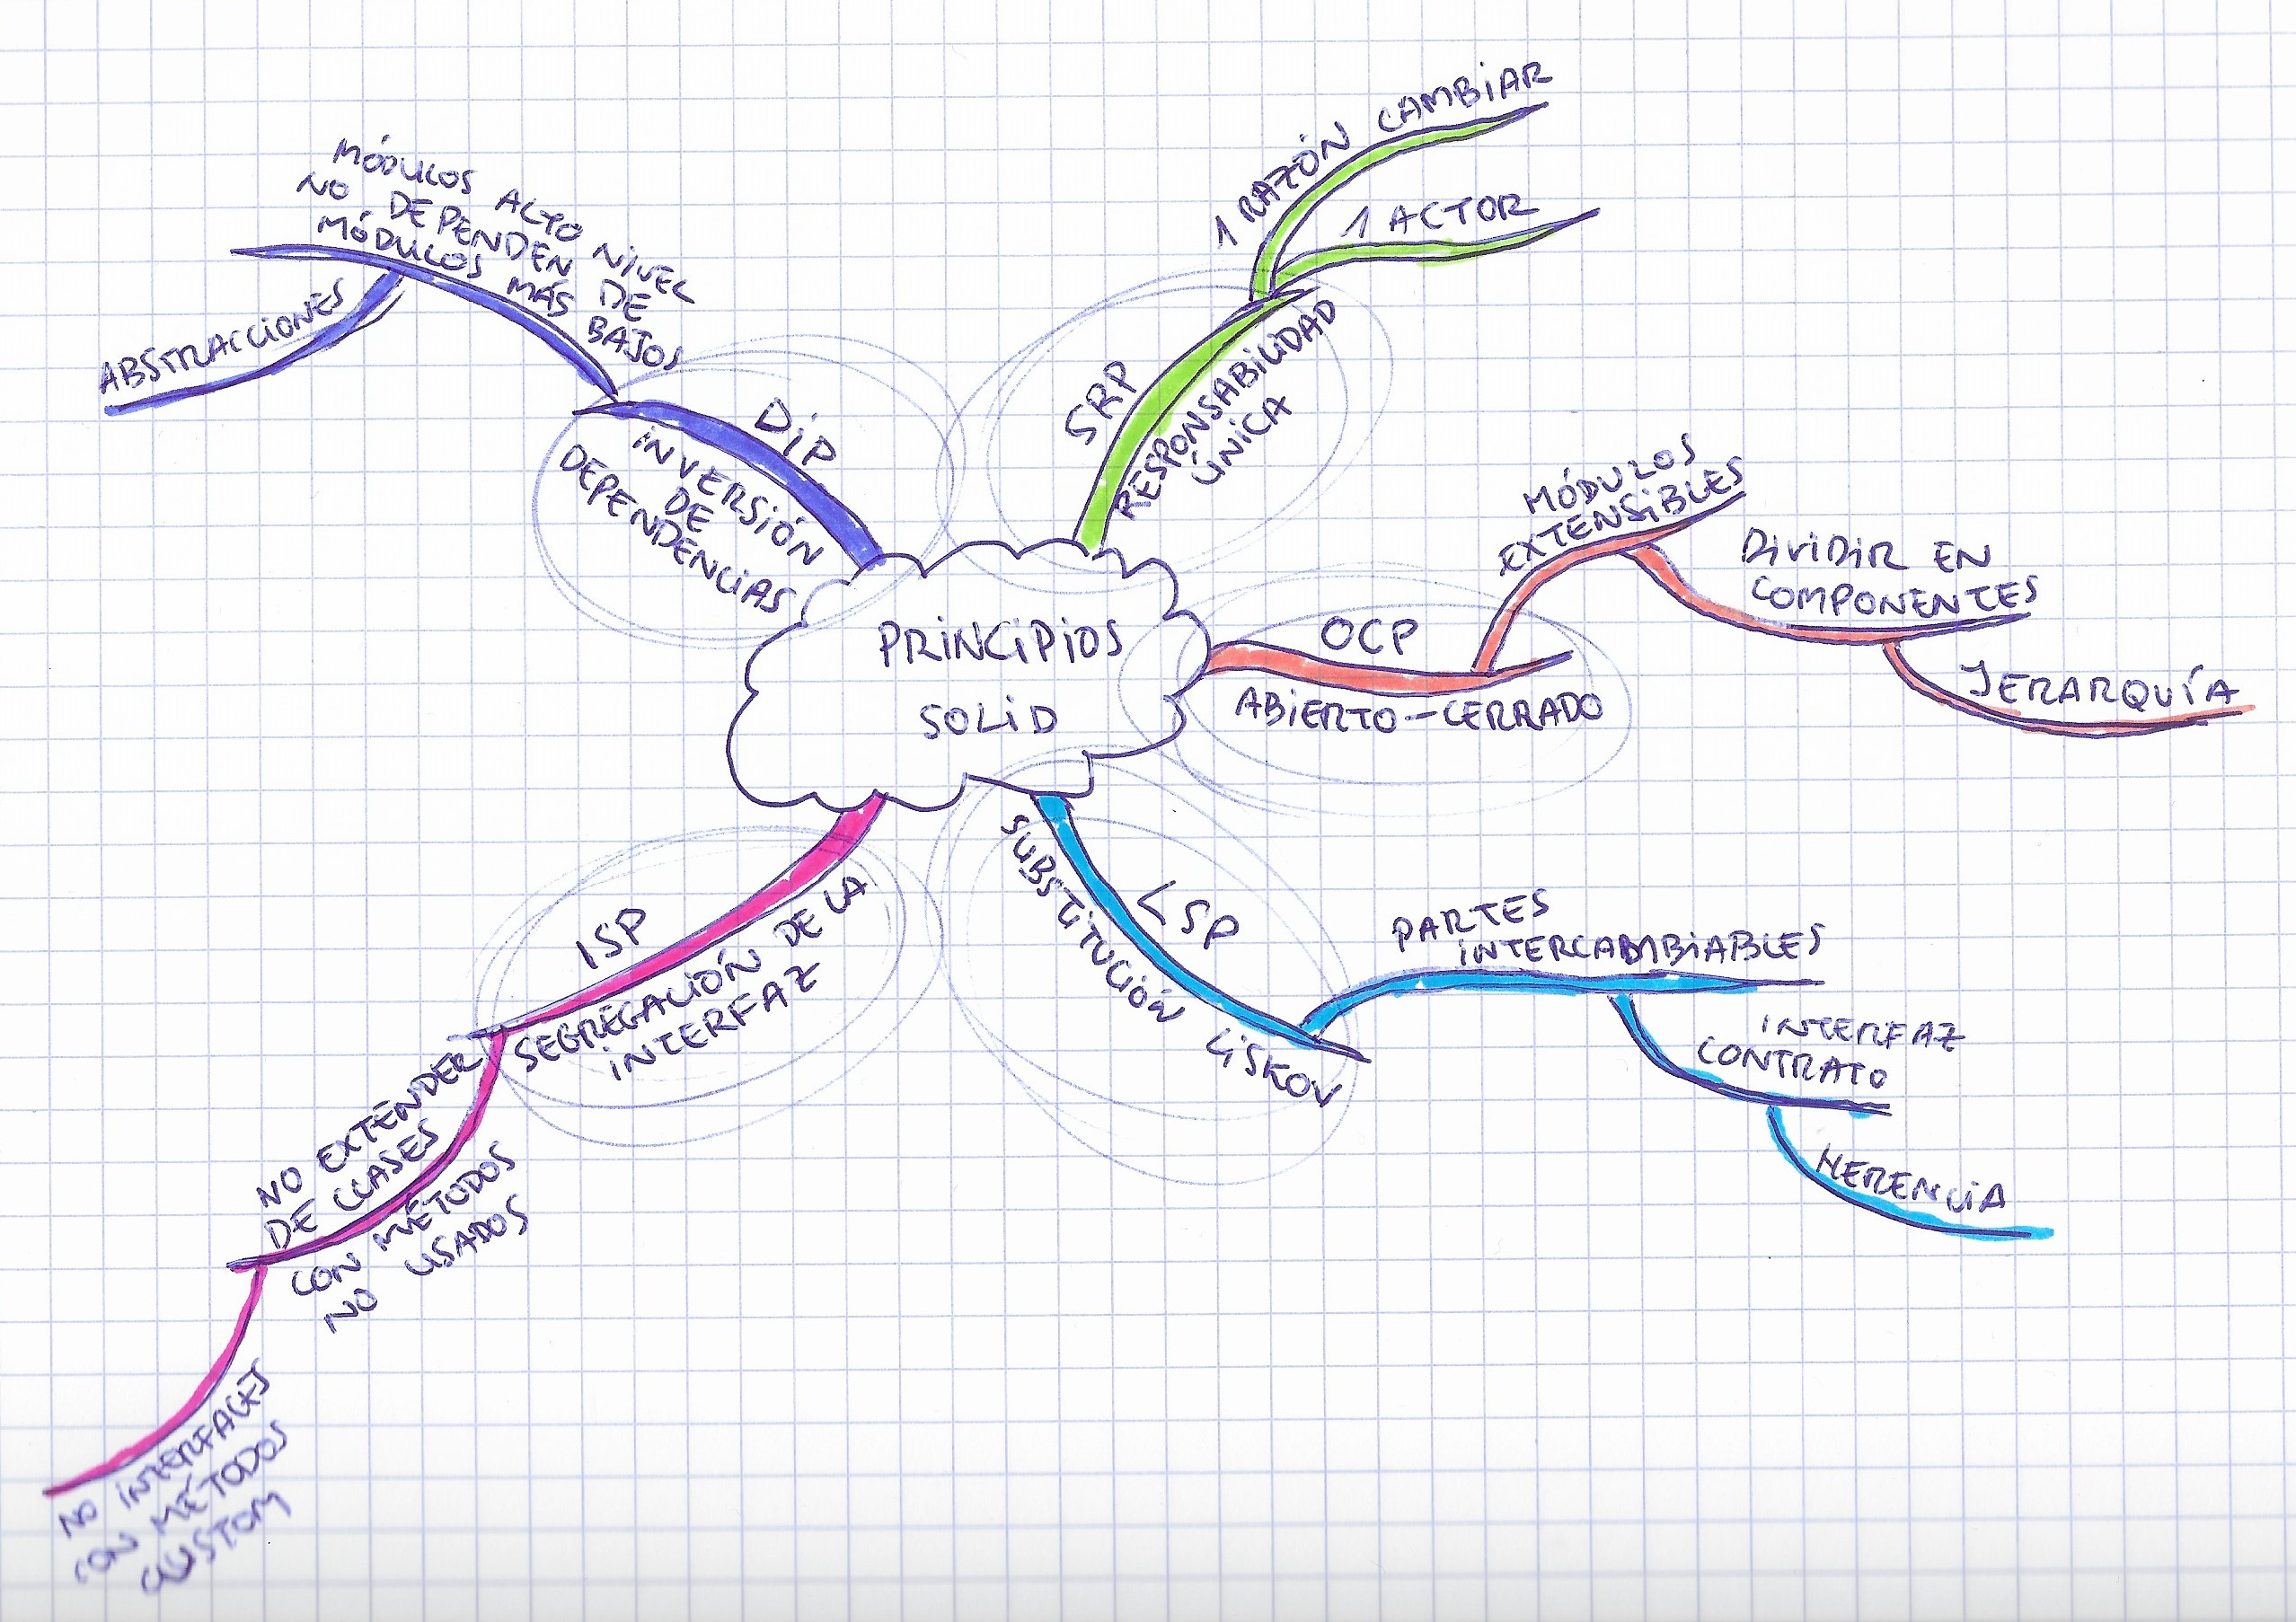 PRINCIPIOS
SOLID
SRP
RESPONSABILIDAD
ÚNICA
1 RAZÓN CAMBIAR
1 ACTOR
OCP
ABIERTO-CERRADO
MÓDULOS
EXTENSIBLES
DIVIDIR EN
COMPONENTES
JERARQUÍA
LSP
SUBSTITUCIÓN LISKOV
PARTES
INTERCAMBIABLES
INTERFAZ
CONTRATO
HERENCIA
ISP
SEGREGACIÓN DE LA
INTERFAZ
NO EXTENDER
DE CLASES
CON MÉTODOS
NO USADOS
NO INTERFACES
CON MÉTODOS
CUSTOM
DIP
INVERSIÓN
DE
DEPENDENCIAS
MÓDULOS ALTO NIVEL
NO DEPENDEN DE
MÓDULOS MÁS BAJOS
ABSTRACCIONES